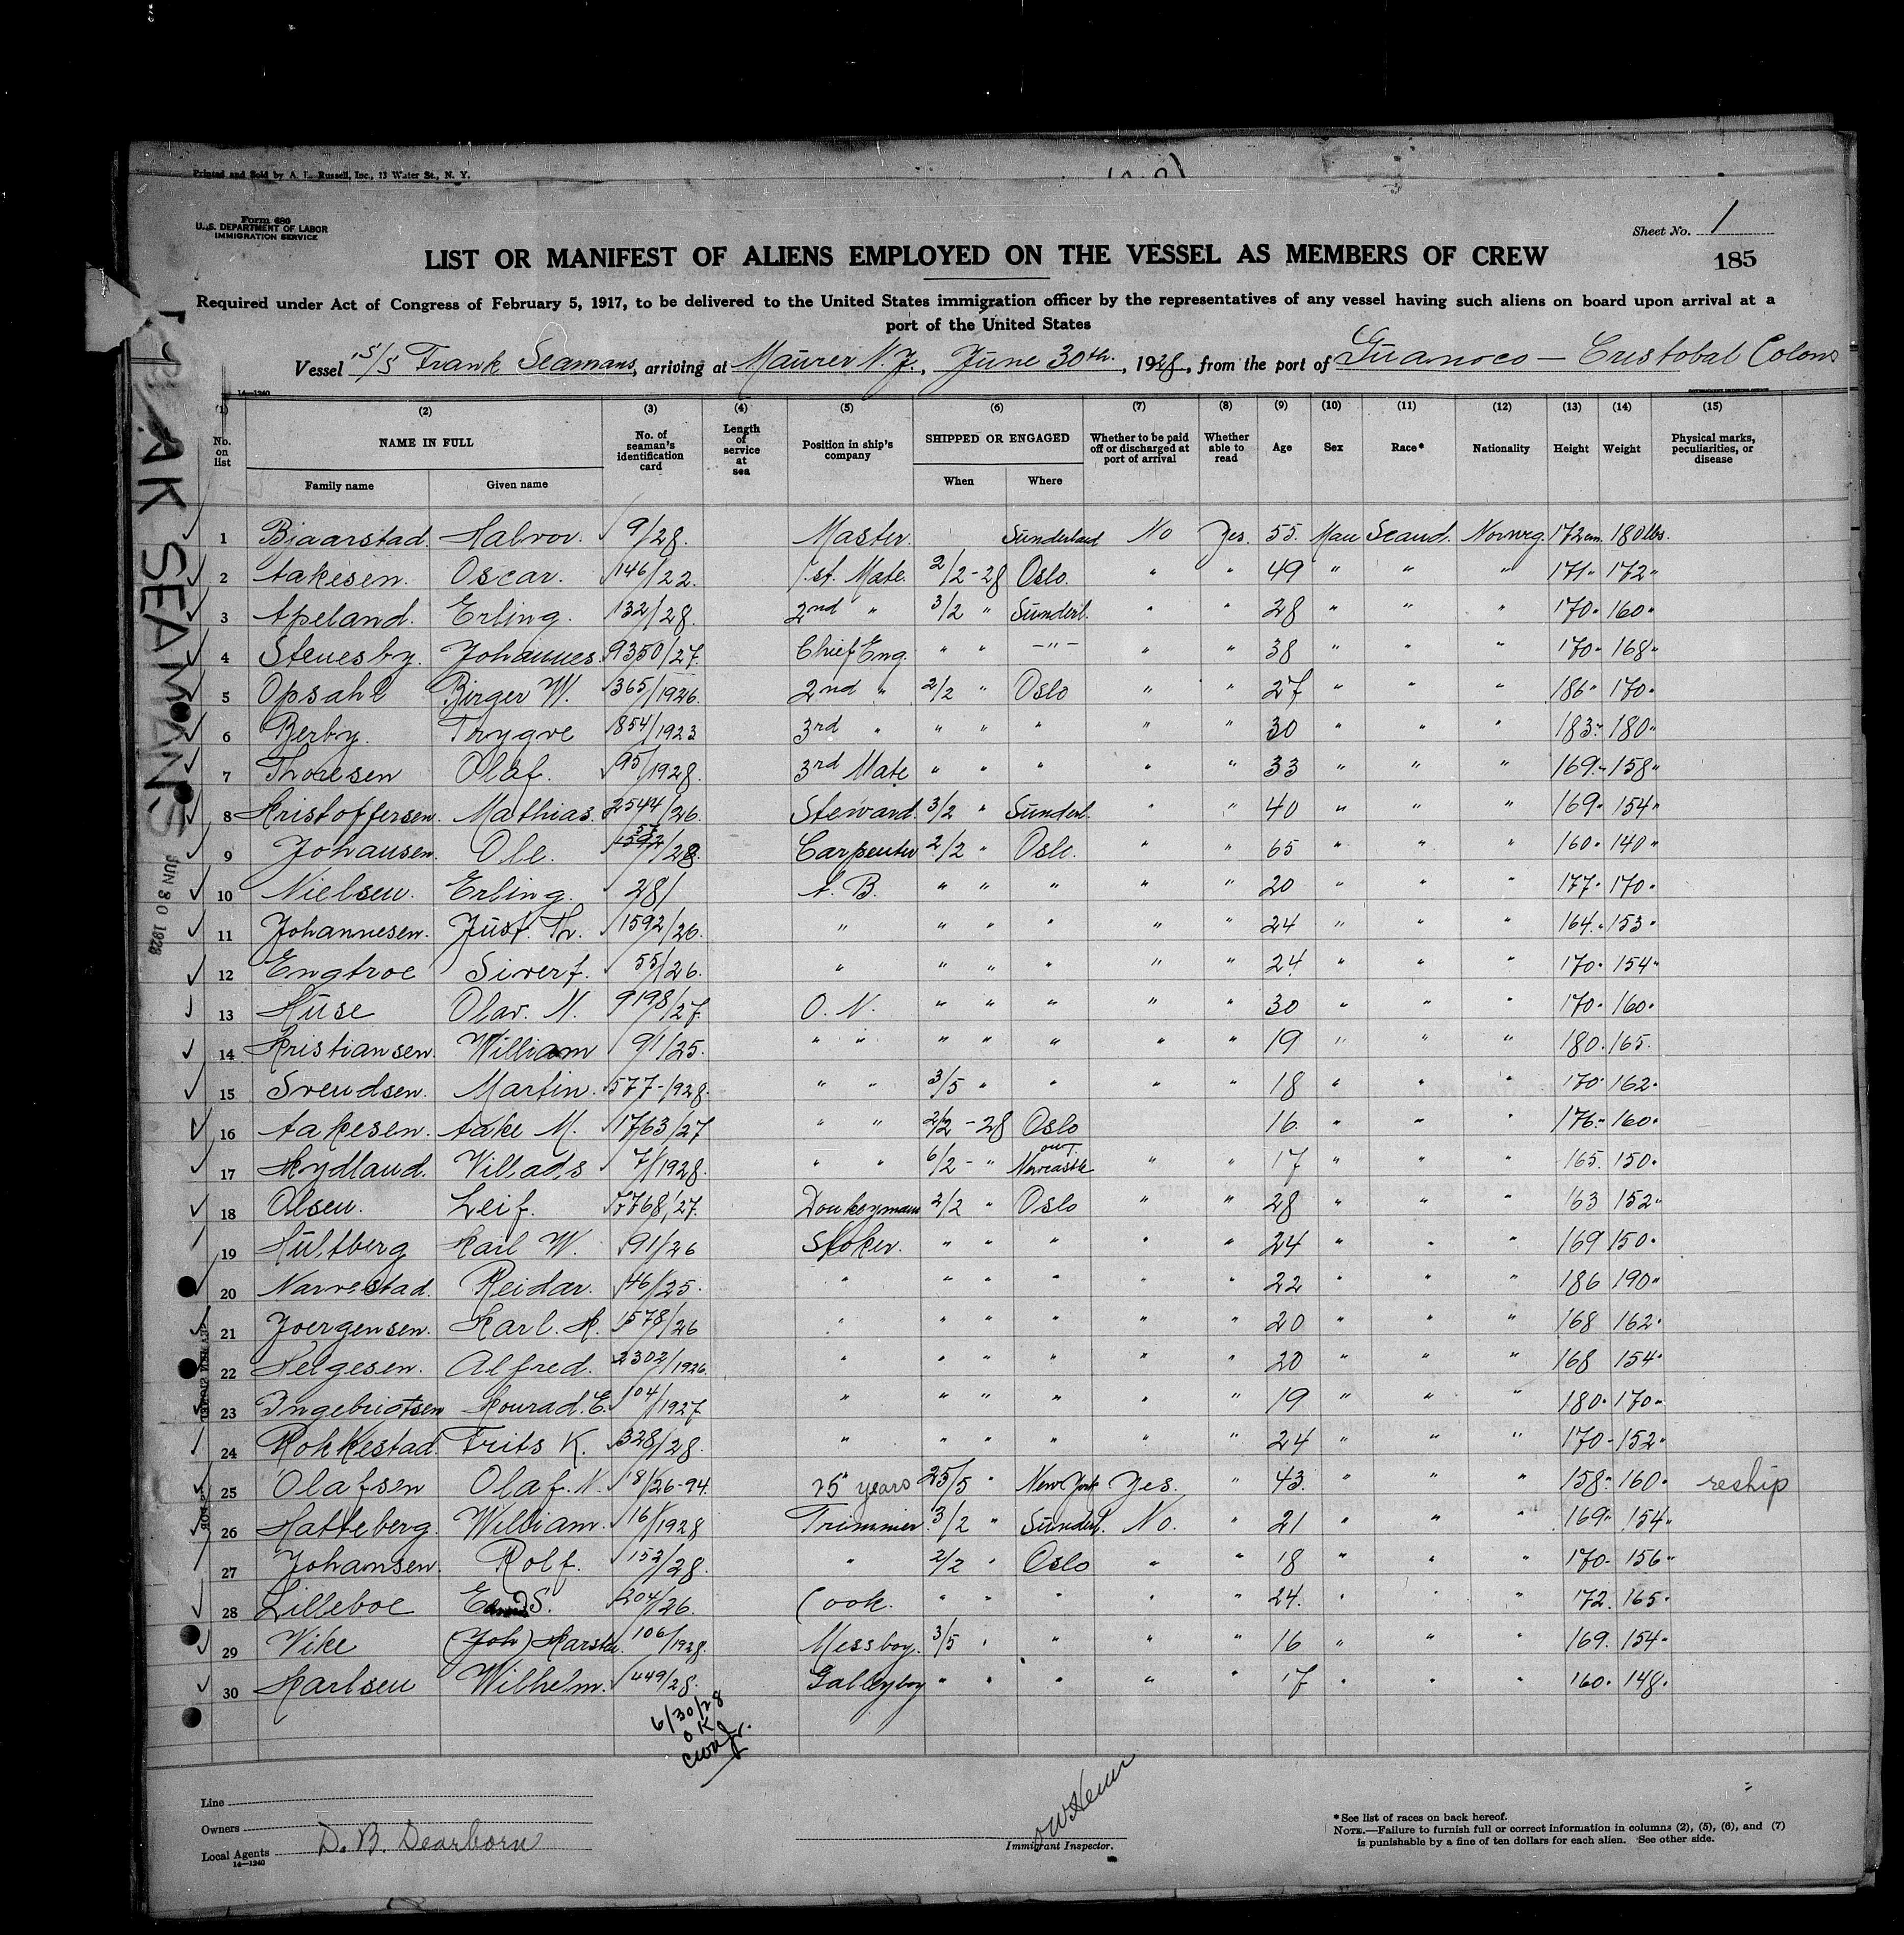 Printed and Sold by A. L. Russell, Inc., 13 Water St., N. Y.
Form 680
U. S. DEPARTMENT OF LABOR
IMMIGRATION SERVICE
Sheet No. 1
LIST OR MANIFEST OF ALIENS EMPLOYED ON THE VESSEL AS MEMBERS OF CREW
185
Required under Act of Congress of February 5, 1917, to be delivered to the United States immigration officer by the representatives of any vessel having such aliens on board upon arrival at a
port of the United States
Vessel S/S Frank Seamans, arriving at Maurer N.J., June 30th, 1928, from the port of Guanoco — Cristobal Colon
14—1240
(1) (2) (3) (4) (5) (6) (7) (8) (9) (10) (11) (12) (13) (14) (15)
No. on list NAME IN FULL No. of seaman's identification card Length of service at sea Position in ship's company SHIPPED OR ENGAGED Whether to be paid off or discharged at port of arrival Whether able to read Age Sex Race* Nationality Height Weight Physical marks, peculiarities, or disease
Family name Given name When Where
1 Bjaarstad. Halvor. 9/28. Master. Sunderland No Yes. 55. Man Scand. Norweg. 172 cm. 180 lbs.
2 Aakesen. Oscar. 146/22. 1.st. Mate. 2/2-28 Oslo. " " 49 " " " 171 " 172 "
3 Apeland. Erling. 132/28. 2nd " 3/2 " Sunderl. " " 28 " " " 170 " 160 "
4 Stenesby. Johannes. 9350/27. Chief Eng. " " —"— " " 38 " " " 170 " 168 "
5 Opsahl Birger W. 365/1926. 2nd " 2/2 " Oslo " " 27 " " " 186 " 170 "
6 Berby. Trygve 854/1923 3rd " " " " " " 30 " " " 183 " 180 "
7 Thoresen Olaf. 95/1928. 3rd Mate " " " " " 33 " " " 169 " 158 "
8 Kristoffersen. Mathias. 2544/26. Steward. 3/2 " Sunderl. " " 40 " " " 169 " 154 "
9 Johansen. Ole. /28. Carpenter 2/2 " Oslo. " " 65 " " " 160 " 140 "
10 Nielsen. Erling. 28/ A. B. " " " " " 20 " " " 177 " 170 "
11 Johannesen. Just. Th. 1592/26. " " " " " " 24 " " " 164 " 153 "
12 Engtroe Sivert. 55/26. " " " " " " 24 " " " 170 " 154 "
13 Huse Olav. N. 9198/27. O. N. " " " " " 30 " " " 170 " 160 "
14 Kristiansen. William 91/25. " " " " " " " 19 " " " 180. 165.
15 Svendsen. Martin. 577-1928. " " 3/5 " " " " 18 " " " 170 " 162 "
16 Aakesen. Aake M. 1763/27 " " 2/2-28 Oslo 16. " " " 176 " 160 "
17 Hydland. Villads 7/1928. " " 6/2- " Newcastle " " 17 " " " 165. 150 "
18 Olsen. Leif. 7768/27. Donkeymann 2/2 " Oslo " " 28 " " " 163 152 "
19 Hultberg Karl W. 91/26 Stoker. " " " " " 24 " " " 169 150 "
20 Narvestad. Reidar. 46/25. " " " " " " 22 " " " 186 190 "
21 Joergensen. Karl. H. 1578/26 " " " " " " 20 " " " 168 162 "
22 Helgesen. Alfred. 2302/1926. " " " " " " 20 " " " 168 154 "
23 Ingebrigtsen Konrad. E. 104/1927. " " " " " " 19 " " " 180 " 170 "
24 Rokkestad. Frits K. 328/28. " " " " " " 24 " " " 170 - 152 "
25 Olafsen Olaf. N. 18/26-94. 25 years 25/5 " New York Yes. " 43. " " " 158 " 160 " reship
26 Hatteberg. William. 16/1928 Trimmer. 3/2 " Sunderl. No. " 21 " " " 169 " 154 "
27 Johansen. Rolf. 152/28. " 2/2 " Oslo " " 18 " " " 170 - 156 "
28 Lilleboe S. 204/26. Cook. " " " " " 24. " " " 172. 165 "
29 Vike (Joh) Karsten. 106/1928. Messboy. 3/5 " " " " 16 " " " 169. 154 "
30 Karlsen Wilhelm. 449/28. Galleyboy " " " " " 17 " " " 160 " 148 "
6/30/28
OK
Line
Owners
Local Agents D. B. Dearborn
14—1240
Immigrant Inspector.
*See list of races on back hereof.
NOTE.—Failure to furnish full or correct information in columns (2), (5), (6), and (7)
is punishable by a fine of ten dollars for each alien. See other side.
SEAMANS
JUN 30 1928